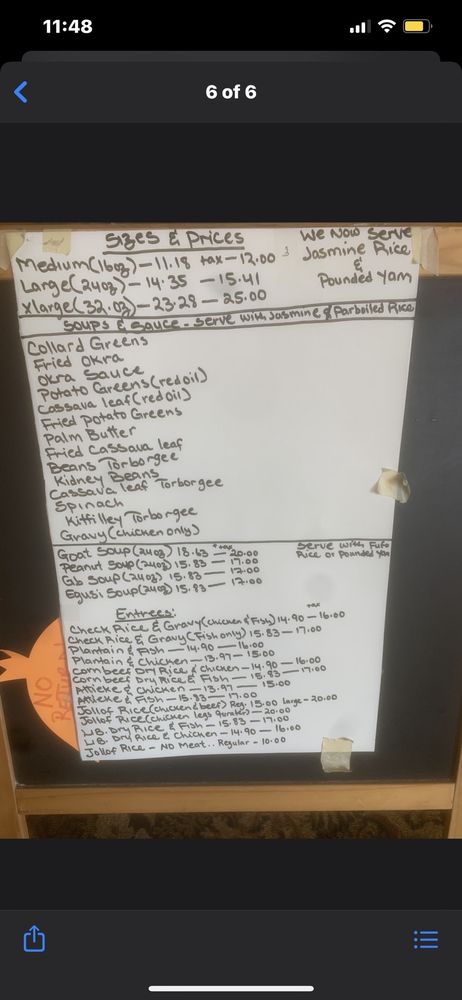 11:48
6 of 6
Sizes & Prices
We Now Serve
Jasmine Rice
&
Pounded Yam
Medium(16oz)-11.18 tax-12.00
Large(24oz)-14.35 -15.41
Xlarge(32.oz)-23.28 - 25.00
Soups & Sauce - Serve with Jasmine & Parboiled Rice
Collard Greens
Fried Okra
Okra Sauce
Potato Greens(red oil)
Cassava leaf(red oil)
Fried Potato Greens
Palm Butter
Fried Cassava leaf
Beans Torborgee
Kidney Beans
Cassava leaf Torborgee
Spinach
Kittilley Torborgee
Gravy (chicken only)
Goat Soup(24oz) 18.63 +tax 20.00
Peanut Soup(24oz) 15.83 - 17.00
Gb Soup(24oz) 15.83 - 17.00
Egusi Soup(24oz) 15.83 - 17.00
Serve with Fufu
Rice or Pounded Yam
Entrees:
tax
Check Rice & Gravy(chicken & Fish)14.90 - 16.00
Check Rice & Gravy(Fish only) 15.83 - 17.00
Plantain & Fish - 14.90 - 16.00
Plantain & Chicken - 13.97 - 15.00
Corn beef Dry Rice & Chicken - 14.90 - 16.00
Corn beef Dry Rice & Fish - 15.83 - 17.00
Attieke & Chicken - 13.97 - 15.00
Attieke & Fish - 15.83 - 17.00
Jollof Rice(chicken & beef) Reg. 15.00 large - 20.00
Jollof Rice(chicken legs quarters) - 20.00
LB. Dry Rice & Fish - 15.83 - 17.00
LB. Dry Rice & Chicken - 14.90 - 16.00
Jollof Rice - No Meat.. Regular - 10.00
NO